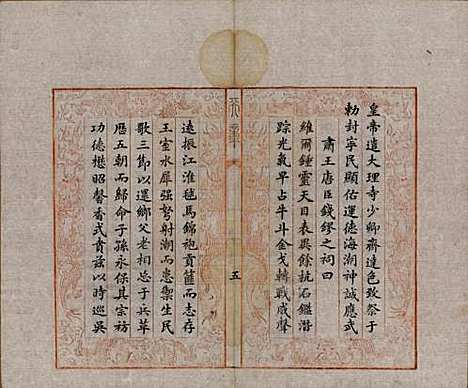 皇帝遣大理寺少卿齊達色致祭于
勅封寧民顯佑運德海潮神誠應武
肅王唐臣錢鏐之祠曰
維爾鍾靈天目表異餘杭石鑑潛
踪光氣早占牛斗金戈轉戰威聲
五
遠振江淮毬馬錦袍貢篚而志存
王室水犀强弩射潮而患禦生民
歌三節以還鄉父老相忘于兵革
歷五朝而歸命子孫永保其宗祊
功德懋昭馨香式賁茲以時巡吳